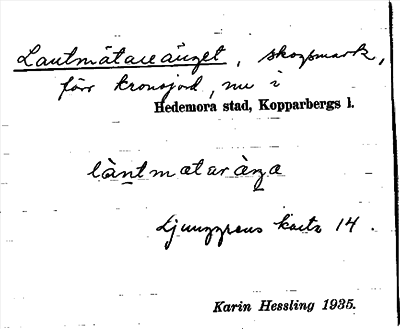 Lantmätareänget, skogsmark,
förr kronojord, nu i
Hedemora stad, Kopparbergs l.
làntmataràŋa
Ljunggrens karta 14.
Karin Hessling 1935.